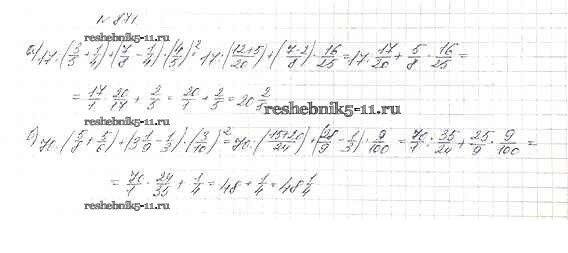 N 871
reshebnik5-11.ru
а) 17 : (3/5 + 1/4) + (7/8 - 1/4) · (4/5)² = 17 : (12+5/20) + (7-2/8) · 16/25 = 17 : 17/20 + 5/8 · 16/25 =
= 17/1 · 20/17 + 2/5 = 20/1 + 2/5 = 20 2/5
reshebnik5-11.ru
reshebnik5-11.ru
б) 70 : (5/8 + 5/6) + (3 1/9 - 1/3) · (3/10)² = 70 : (15+20/24) + (28/9 - 1/3) · 9/100 = 70/1 : 35/24 + 25/9 · 9/100 =
= 70/1 · 24/35 + 1/4 = 48 + 1/4 = 48 1/4
reshebnik5-11.ru